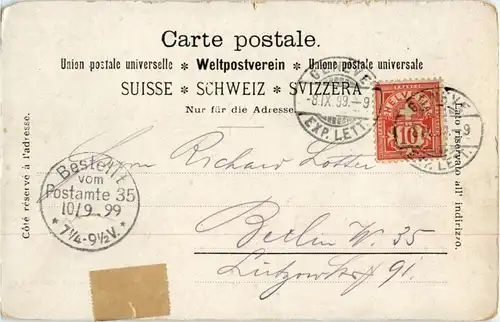 Carte postale.
Union postale universelle * Weltpostverein * Unione postale universale
SUISSE * SCHWEIZ * SVIZZERA
Nur für die Adresse.
GENÈVE
-8.IX.99.-9
EXP. LETT.
HELVETIA
10
GENÈVE
9
EXP. LETT.
Côté réservé à l'adresse.
Lato riservato all' indirizzo.
Bestellt
vom
Postamte 35
10/9 99
* 7¼-9½V. *
Herrn Richard Lotter
Berlin W. 35
Lützowstr 91.